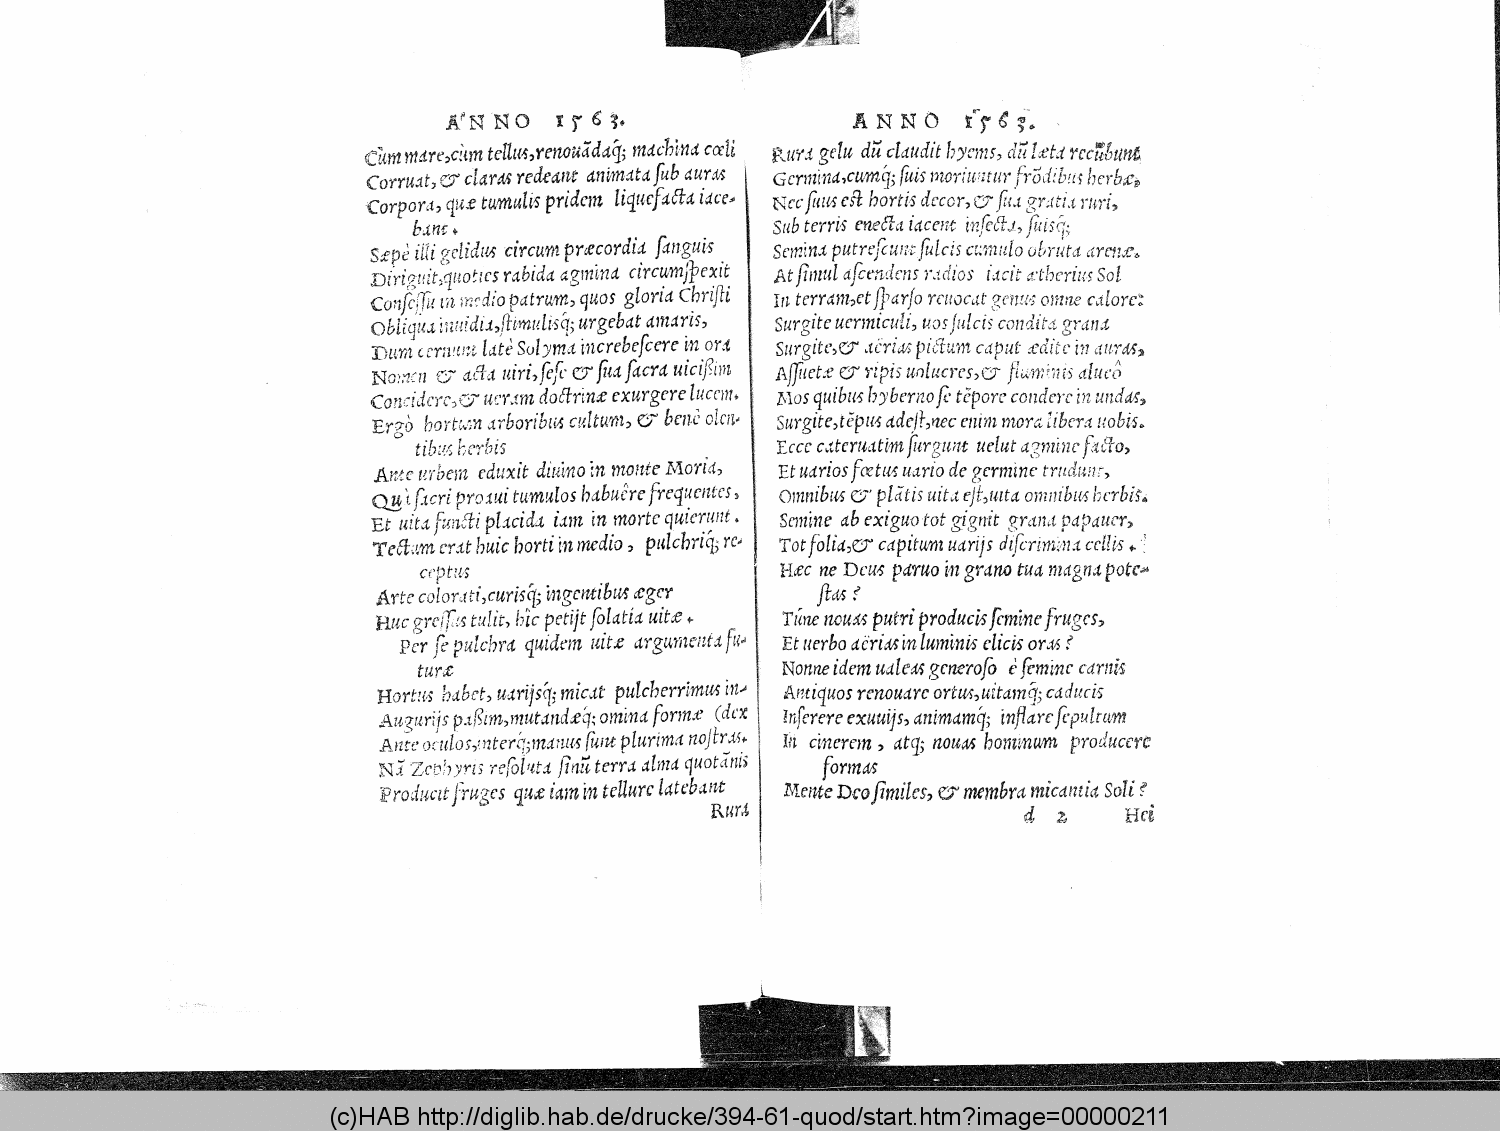 ANNO 1563.
Cùm mare,cùm tellus,renouãdaq́; machina cœli
Corruat, & claras redeant animata sub auras
Corpora, quæ tumulis pridem liquefacta iace-
bant.
Sæpè illi gelidus circum præcordia sanguis
Diriguit,quoties rabida agmina circumspexit
Consessu in medio patrum, quos gloria Christi
Obliqua inuidia,stimulisq́; urgebat amaris,
Dum cernunt latè Solyma increbescere in ora
Nomen & acta uiri, sese & sua sacra uicißim
Concidere,& ueram doctrinæ exurgere lucem.
Ergò hortum arboribus cultum, & benè olen-
tibus herbis
Ante urbem eduxit diuino in monte Moria,
Quì sacri proaui tumulos habuêre frequentes,
Et uita functi placida iam in morte quierunt.
Tectum erat huic horti in medio, pulchriq́; re-
ceptus
Arte colorati,curisq́; ingentibus æger
Huc gressus tulit, hîc petijt solatia uitæ.
Per se pulchra quidem uitæ argumenta fu-
turæ
Hortus habet, uarijsq́; micat pulcherrimus in-
Augurijs paßim,mutandæq́; omina formæ (dex
Ante oculos,interq́;manus sunt plurima nostras.
Nã Zephyris resoluta sinũ terra alma quotãnis
Producit fruges quæ iam in tellure latebant
Rura
ANNO 1563.
Rura gelu dũ claudit hyems, dũ læta recũbunt
Germina,cumq́; suis moriuntur frõdibus herbæ,
Nec suus est hortis decor, & sua gratia ruri,
Sub terris enecta iacent insecta, suisq́;
Semina putrescunt sulcis cumulo obruta arenæ.
At simul ascendens radios iacit ætherius Sol
In terram,et sparso reuocat genus omne calore:
Surgite uermiculi, uos sulcis condita grana
Surgite,& aërias pictum caput ædite in auras,
Assuetæ & ripis uolucres,& fluminis alueô
Mos quibus hyberno se tẽpore condere in undas,
Surgite,tẽpus adest,nec enim mora libera uobis.
Ecce cateruatim surgunt uelut agmine facto,
Et uarios fœtus uario de germine trudunt,
Omnibus & plãtis uita est,uita omnibus herbis.
Semine ab exiguo tot gignit grana papauer,
Tot folia,& capitum uarijs discrimina cellis.
Hæc ne Deus paruo in grano tua magna pote-
stas?
Túne nouas putri producis semine fruges,
Et uerbo aërias in luminis elicis oras?
Nonne idem ualeas generoso è semine carnis
Antiquos renouare ortus,uitamq́; caducis
Inserere exuuijs, animamq́; inflare sepultum
In cinerem, atq; nouas hominum producere
formas
Mente Deo similes, & membra micantia Soli?
d 2 Hei
(c)HAB http://diglib.hab.de/drucke/394-61-quod/start.htm?image=00000211